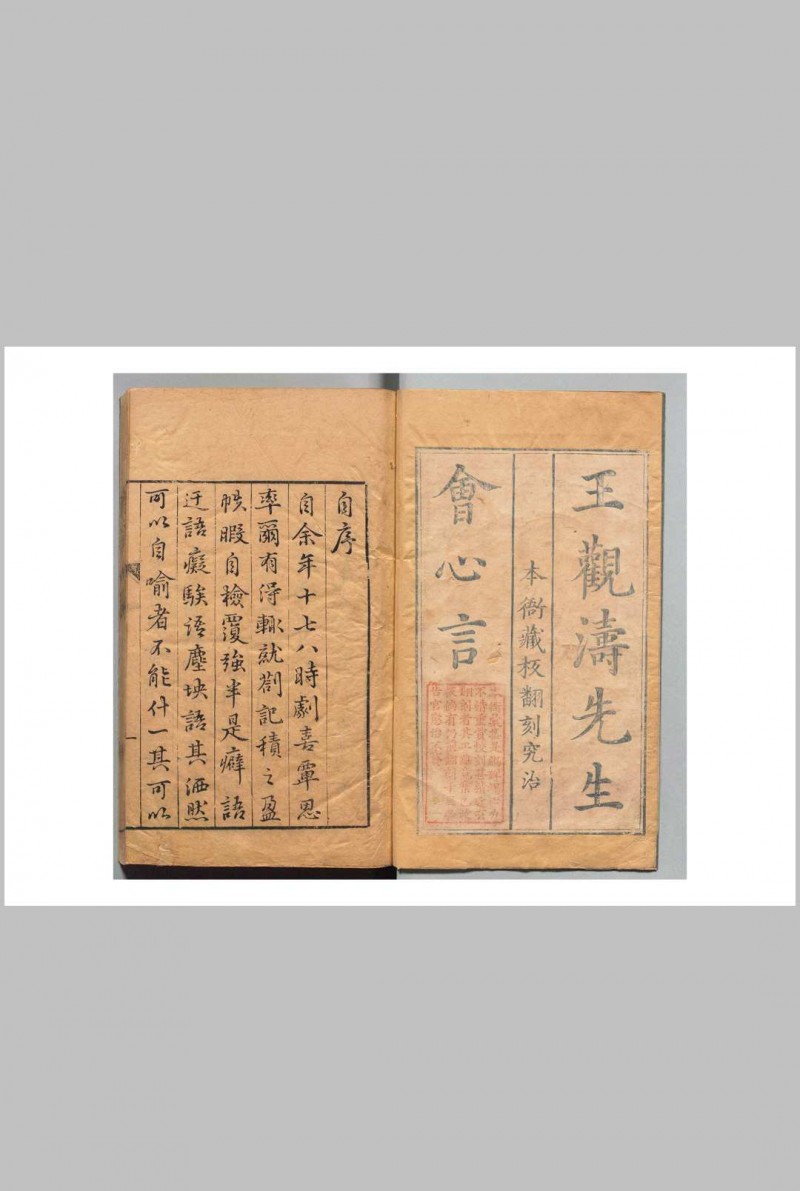 王觀濤先生
本衙藏板翻刻究治
會心言
自序
自余年十七八時劇喜覃思
率爾有得輒就劄記積之盈
帙暇自檢覆強半是癖語
迂語癡騃语塵坱語其洒然
可以自喻者不能什一其可以
一